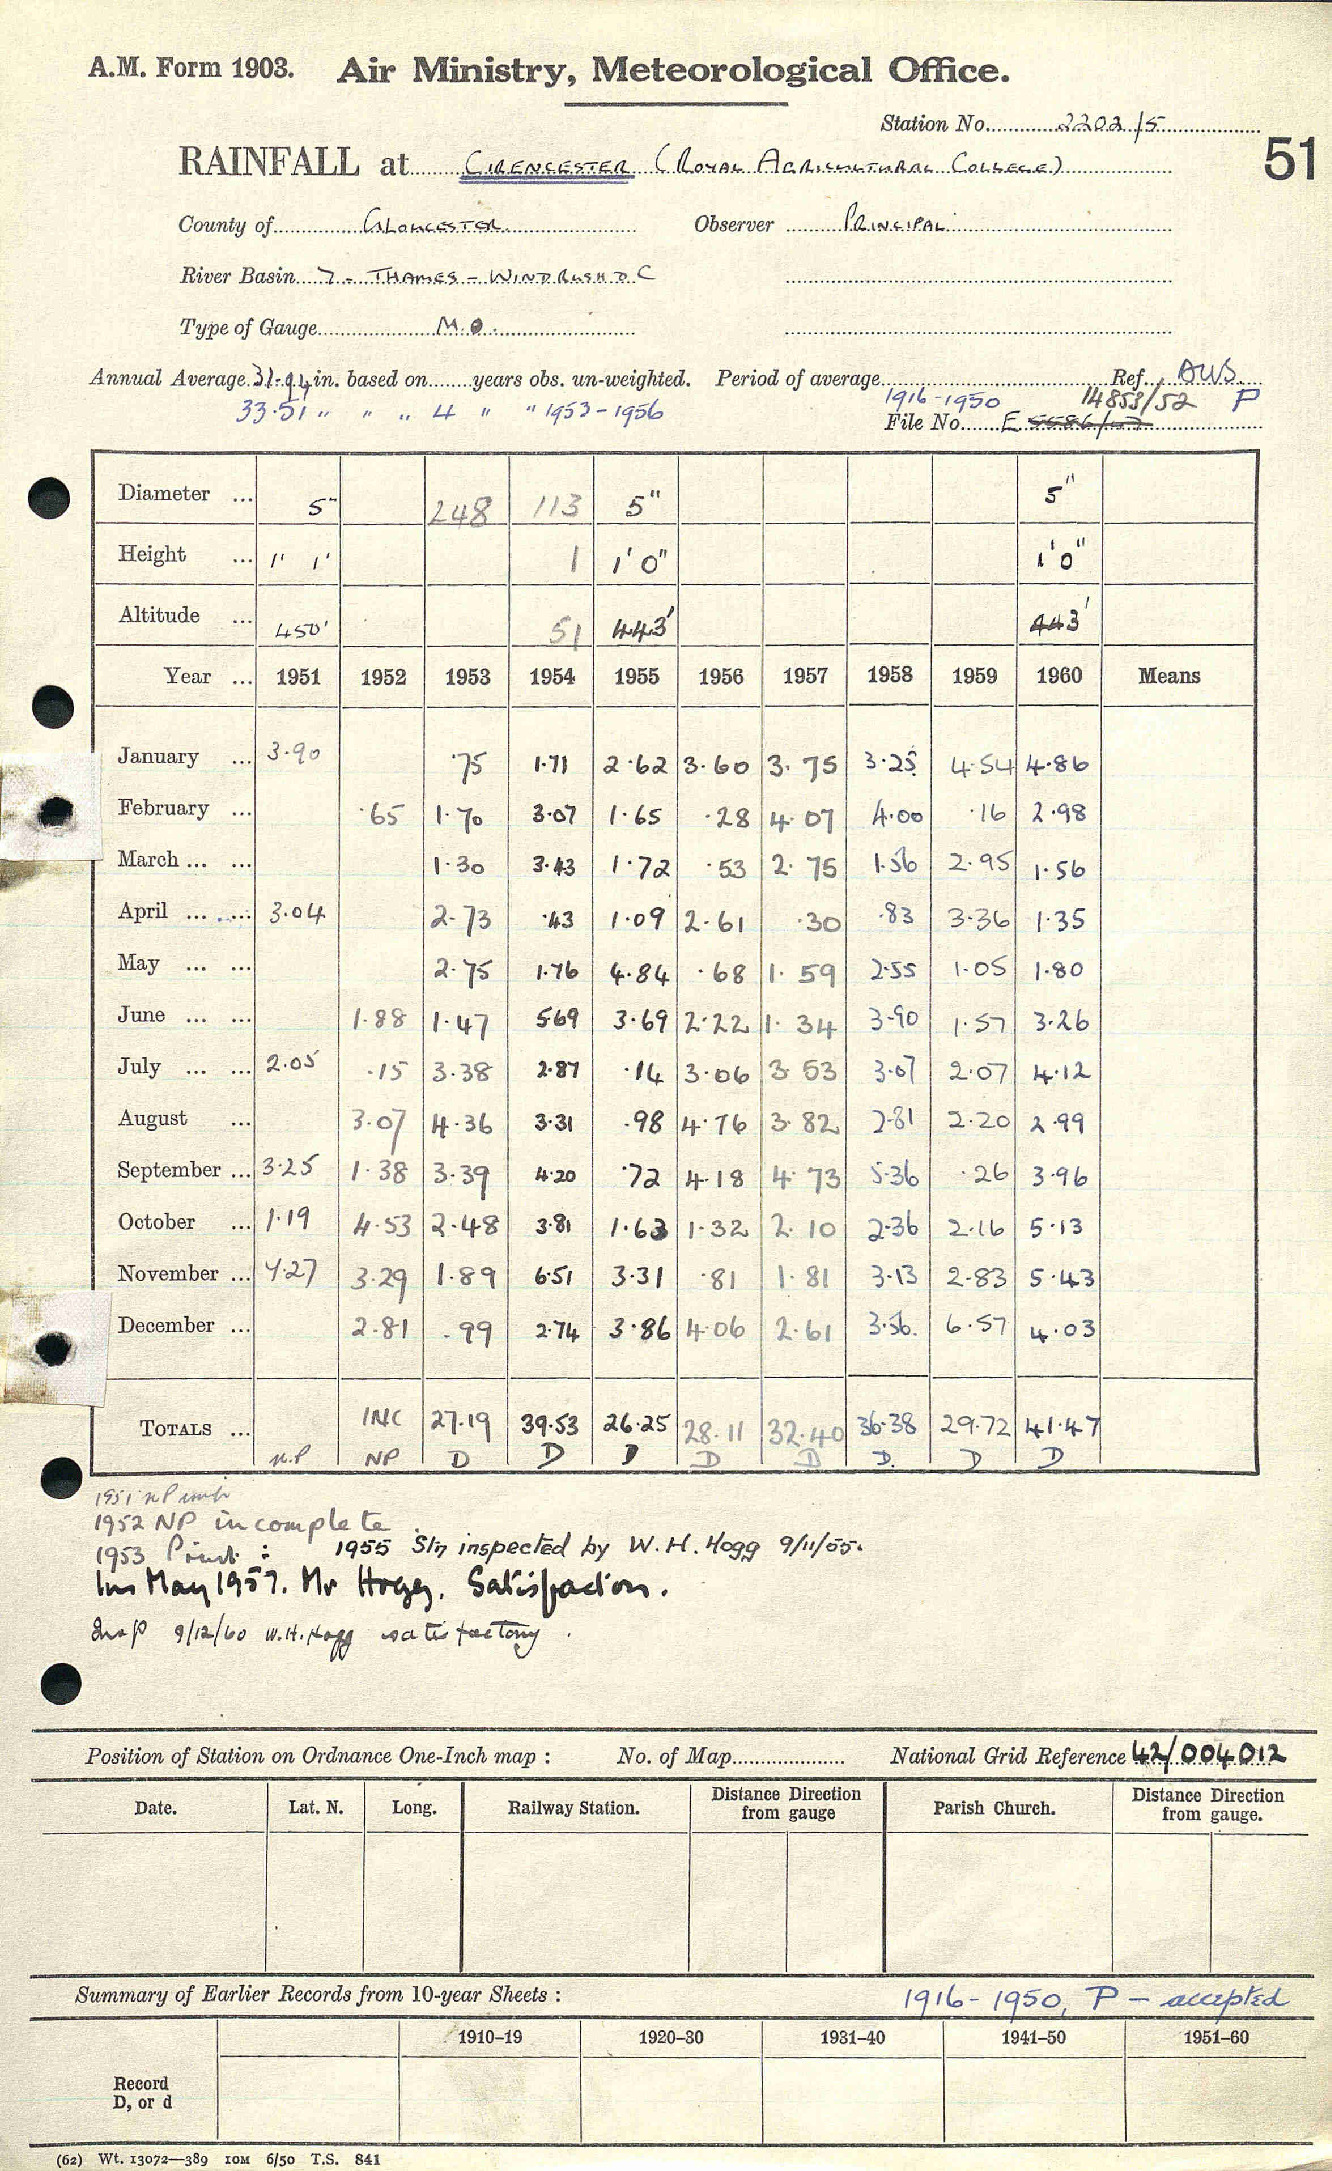 A.M. Form 1903. Air Ministry, Meteorological Office.
Station No. 2202/5
51
RAINFALL at CIRENCESTER (ROYAL AGRICULTURAL COLLEGE)
County of GLOUCESTER Observer PRINCIPAL
River Basin 7 - THAMES - WINDRUSH D C
Type of Gauge M.O.
Annual Average 31.94 in. based on years obs. un-weighted. Period of average 1916-1950 Ref. AWS
33.51 " " " 4 " " 1953-1956 14853/52 P
File No. E
Diameter ... 5" 248 113 5" 5"
Height ... 1' 1' 1 1'0" 1'0"
Altitude ... 450' 51 443' 443'
Year ... 1951 1952 1953 1954 1955 1956 1957 1958 1959 1960 Means
January ... 3.90 .75 1.71 2.62 3.60 3.75 3.25 4.54 4.86
February ... .65 1.70 3.07 1.65 .28 4.07 4.00 .16 2.98
March ... ... 1.30 3.43 1.72 .53 2.75 1.56 2.95 1.56
April ... ... 3.04 2.73 .43 1.09 2.61 .30 .83 3.36 1.35
May ... ... 2.75 1.76 4.84 .68 1.59 2.55 1.05 1.80
June ... ... 1.88 1.47 5.69 3.69 2.22 1.34 3.90 1.57 3.26
July ... ... 2.05 .15 3.38 2.87 .14 3.06 3.53 3.07 2.07 4.12
August ... 3.07 4.36 3.31 .98 4.76 3.82 2.81 2.20 2.99
September ... 3.25 1.38 3.39 4.20 .72 4.18 4.73 5.36 .26 3.96
October ... 1.19 4.53 2.48 3.81 1.63 1.32 2.10 2.36 2.16 5.13
November ... 4.27 3.29 1.89 6.51 3.31 .81 1.81 3.13 2.83 5.43
December ... 2.81 .99 2.74 3.86 4.06 2.61 3.56 6.57 4.03
TOTALS ... INC 27.19 39.53 26.25 28.11 32.40 36.38 29.72 41.47
n.P NP D D D D D D. D D
1951 n P
1952 NP incomplete
1953 Print : 1955 Stn inspected by W.H. Hogg 9/11/55.
Ins May 1957. Mr Hogg. Satisfaction.
Insp 9/12/60 W.H. Hogg satisfactory.
Position of Station on Ordnance One-Inch map : No. of Map National Grid Reference 42/004012
Date. Lat. N. Long. Railway Station. Distance Direction from gauge Parish Church. Distance Direction from gauge.
Summary of Earlier Records from 10-year Sheets : 1916-1950, P - accepted
1910-19 1920-30 1931-40 1941-50 1951-60
Record
D, or d
(62) Wt. 13072—389 10M 6/50 T.S. 841